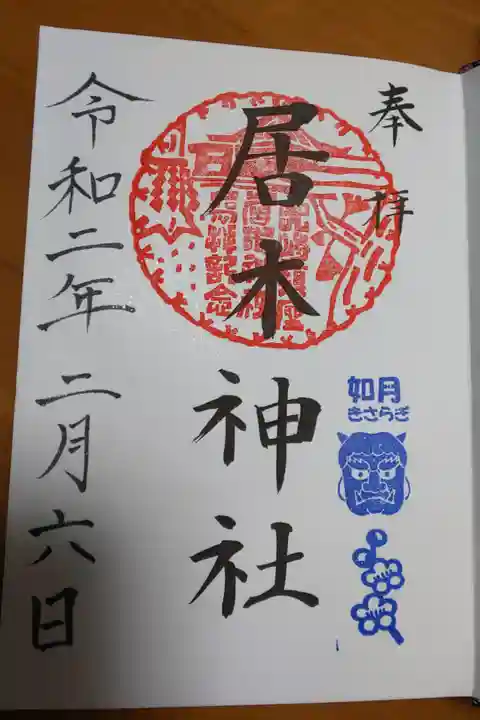 奉拝
居木神社
令和二年二月六日
如月
きさらぎ
参拝記念